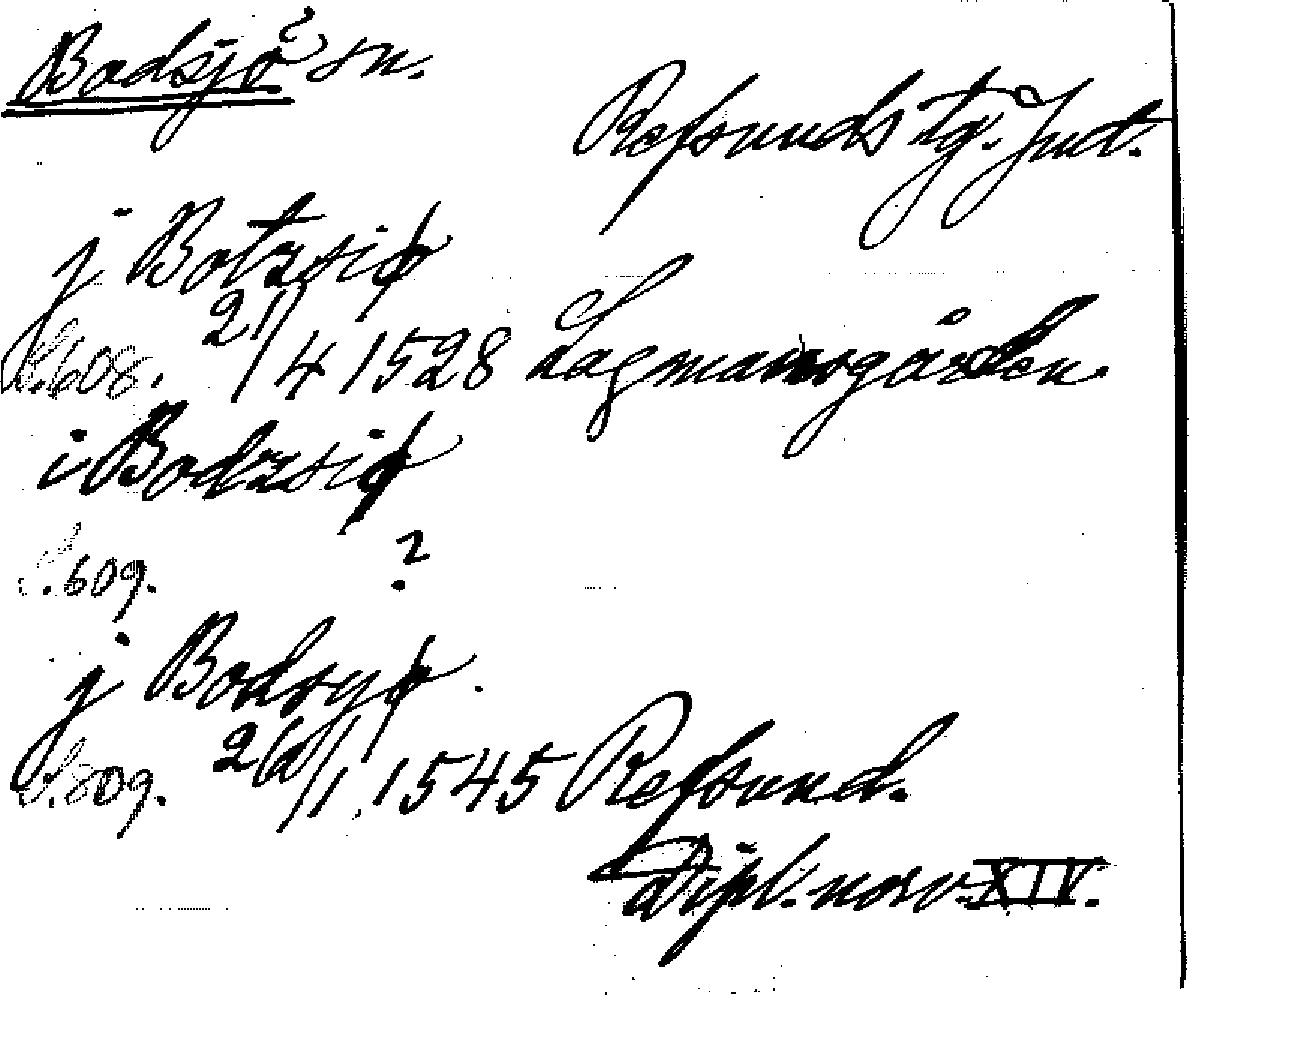 Bodsjö sn.
Refsunds tg. Jmt.
j Botzsiø
S.608. 21/4 1528 Lagmansgården
i Bodzsiø
S.609. ?
j Bodsyø.
S.809. 26/1 1545 Refsund.
Dipl. norv. XIV.